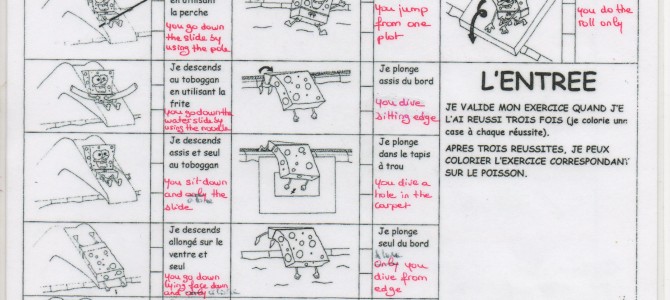 en utilisant
la perche
you go down
the slide by
using the pole
you jump
from one
plot
you do the
roll only
Je descends
au toboggan
en utilisant la
frite
you go down the
water slide by
using the noodle
Je plonge
assis du bord
you dive
sitting edge
L'ENTREE
JE VALIDE MON EXERCICE QUAND J'E
L'AI REUSSI TROIS FOIS (je colorie une
case à chaque réussite).
APRES TROIS REUSSITES, JE PEUX
COLORIER L'EXERCICE CORRESPONDANT
SUR LE POISSON.
Je descends
assis et seul
au toboggan
you sit down
and only the
alone
slide
Je plonge
dans le tapis
à trou
you dive a
hole in the
carpet
Je descends
allongé sur le
ventre et
seul
you go down
lying face down
and only alone
Je plonge
seul du bord
alone
only you
dive from
edge